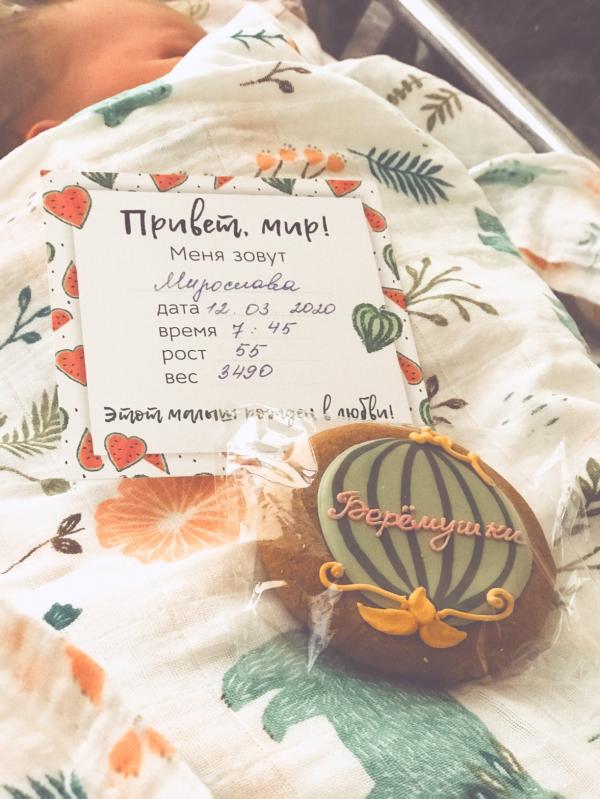 Привет, мир!
Меня зовут
Мирослава
дата 12. 03. 2020
время 7: 45
рост 55
вес 3490
Этот малыш рождён в любви!
Берёмушки